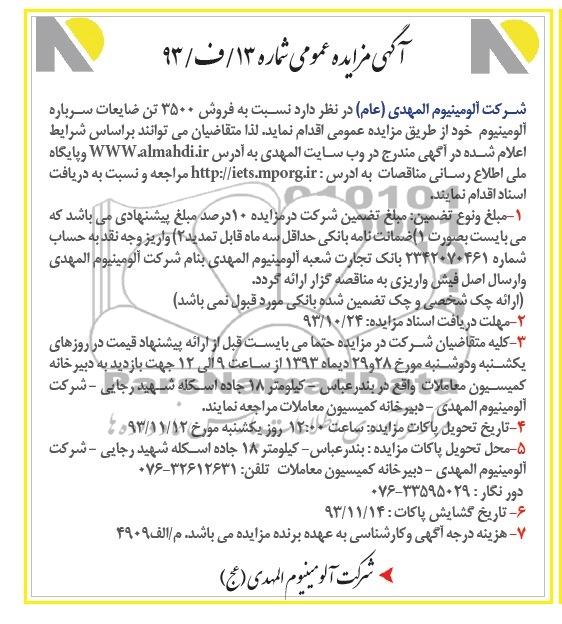 آگهی مزایده عمومی شماره ۱۳/ف/۹۳
شرکت آلومینیوم المهدی (عام) در نظر دارد نسبت به فروش ۳۵۰۰ تن ضایعات سرباره
آلومینیوم خود از طریق مزایده عمومی اقدام نماید. لذا متقاضیان می توانند براساس شرایط
اعلام شده در آگهی مندرج در وب سایت المهدی به آدرس WWW.almahdi.ir وپایگاه
ملی اطلاع رسانی مناقصات به ادرس : http://iets.mporg.ir مراجعه و نسبت به دریافت
اسناد اقدام نمایند.
۱-مبلغ ونوع تضمین: مبلغ تضمین شرکت درمزایده ۱۰درصد مبلغ پیشنهادی می باشد که
می بایست بصورت ۱)ضمانت نامه بانکی حداقل سه ماه قابل تمدید۲) واریز وجه نقد به حساب
شماره ۲۳۴۲۰۷۰۴۶۱ بانک تجارت شعبه آلومینیوم المهدی بنام شرکت آلومینیوم المهدی
وارسال اصل فیش واریزی به مناقصه گزار ارائه گردد.
(ارائه چک شخصی و چک تضمین شده بانکی مورد قبول نمی باشد)
۲-مهلت دریافت اسناد مزایده: ۹۳/۱۰/۲۴
۳-کلیه متقاضیان شرکت در مزایده حتما می بایست قبل از ارائه پیشنهاد قیمت در روزهای
یکشنبه ودوشنبه مورخ ۲۸و۲۹ دیماه ۱۳۹۳ از ساعت ۹ الی ۱۲ جهت بازدید به دبیرخانه
کمیسیون معاملات واقع در بندرعباس - کیلومتر ۱۸ جاده اسکله شهید رجایی - شرکت
آلومینیوم المهدی - دبیرخانه کمیسیون معاملات مراجعه نمایند.
۴-تاریخ تحویل پاکات مزایده: ساعت ۱۲:۰۰ روز یکشنبه مورخ ۹۳/۱۱/۱۲
۵-محل تحویل پاکات مزایده : بندرعباس- کیلومتر ۱۸ جاده اسکله شهید رجایی - شرکت
آلومینیوم المهدی - دبیرخانه کمیسیون معاملات تلفن: ۳۲۶۱۲۶۳۱-۰۷۶
دور نگار : ۳۳۵۹۵۰۲۹-۰۷۶
۶- تاریخ گشایش پاکات : ۹۳/۱۱/۱۴
۷- هزینه درجه آگهی وکارشناسی به عهده برنده مزایده می باشد. م/الف۴۹۰۹
شرکت آلومینیوم المهدی (عج)